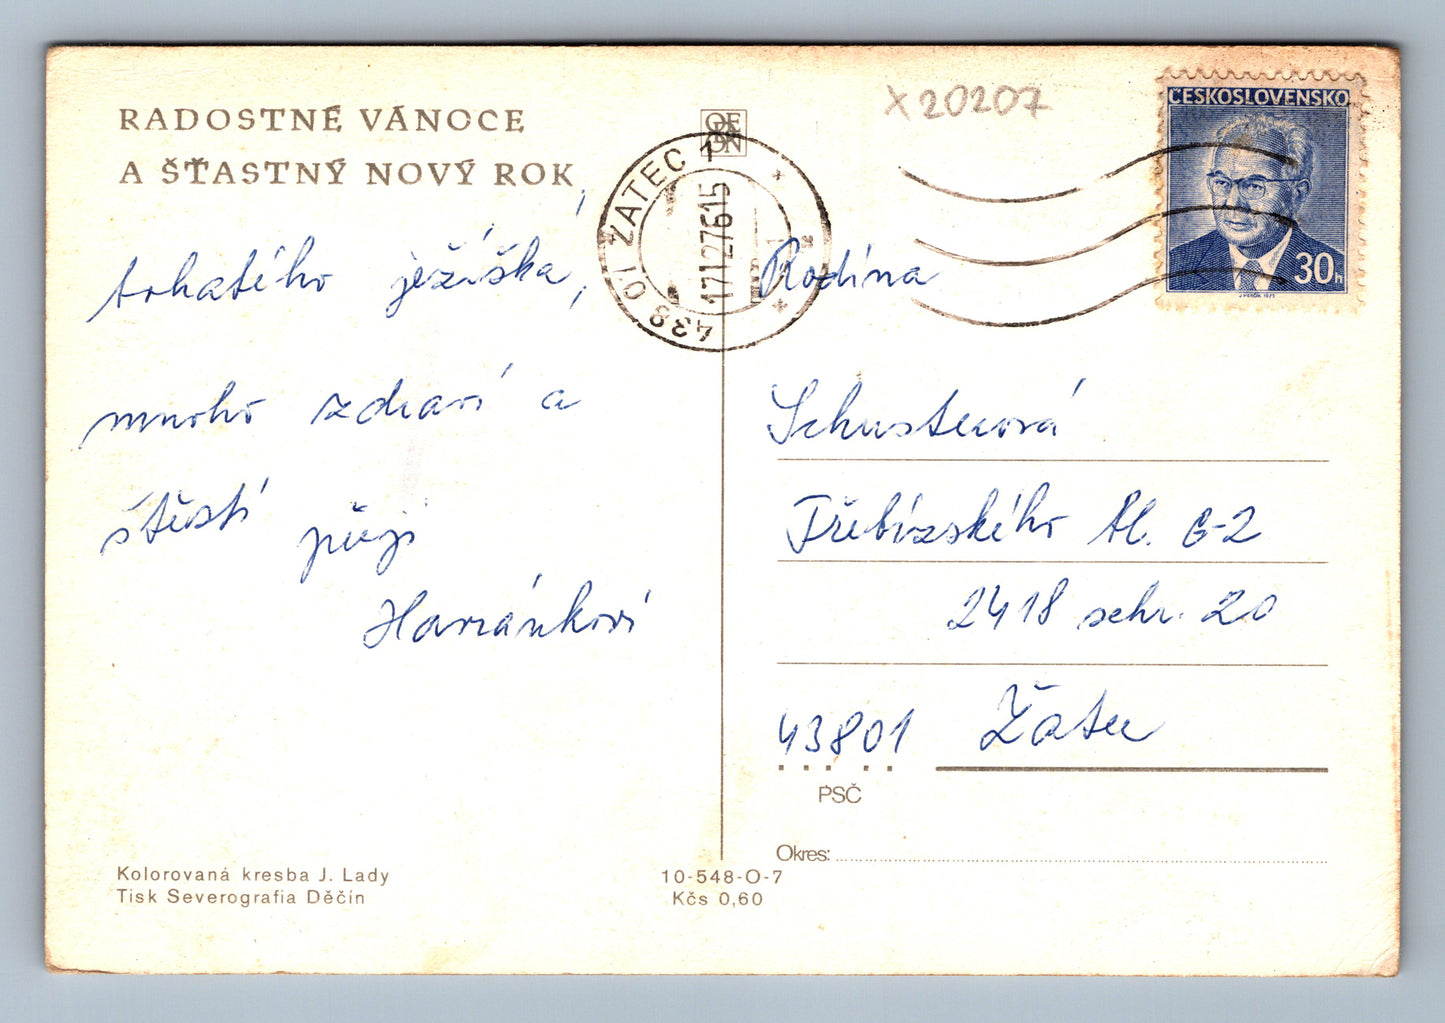 RADOSTNÉ VÁNOCE
A ŠŤASTNÝ NOVÝ ROK
bohatého ježíška,
mnoho zdraví a
štěstí přejí
ODEON
438 01 ŽATEC 1
17.12.76 15
X20207
ČESKOSLOVENSKO
30h
Rodina
Schusterová
Třebízského bl. G-2
2418 schr. 20
43801 Žatec
PSČ
Okres:
Kolorovaná kresba J. Lady
Tisk Severografia Děčín
10-548-O-7
Kčs 0,60